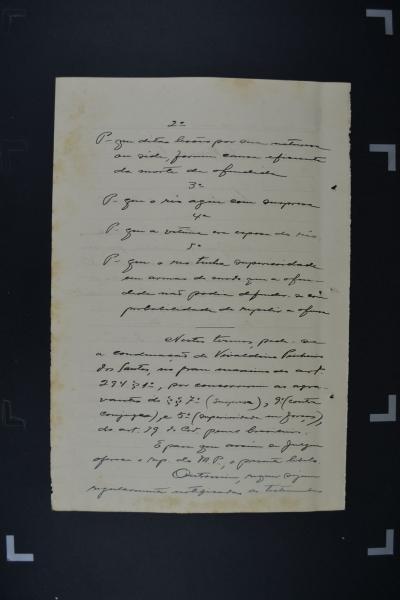 2º
P- que ditas lesões por sua natureza
ou séde, foram causa efficiente
da morte da offendida
3º
P- que o réo agiu com surpresa
4º
P- que a victima era esposa do réo
5º
P- que o réo tinha superioridade
em armas de modo que a offen-
dida não podia defender-se com
probabilidade de repellir a offensa
Nestes termos, pede-se
a condemnação de Pinheiro
dos Santos, no grau maximo do art.
294 § 1º, por concorrerem as aggra-
vantes do §§ 7º (surpresa), 9º (contra
conjuge), e 5º (superioridade em armas),
do art. 39 do Cod. penal brasileiro.
E para que assim se julgue
offerece o rep. do M.P., o presente libello.
Outrossim, requer sejam
regularmente notificadas as testemunhas